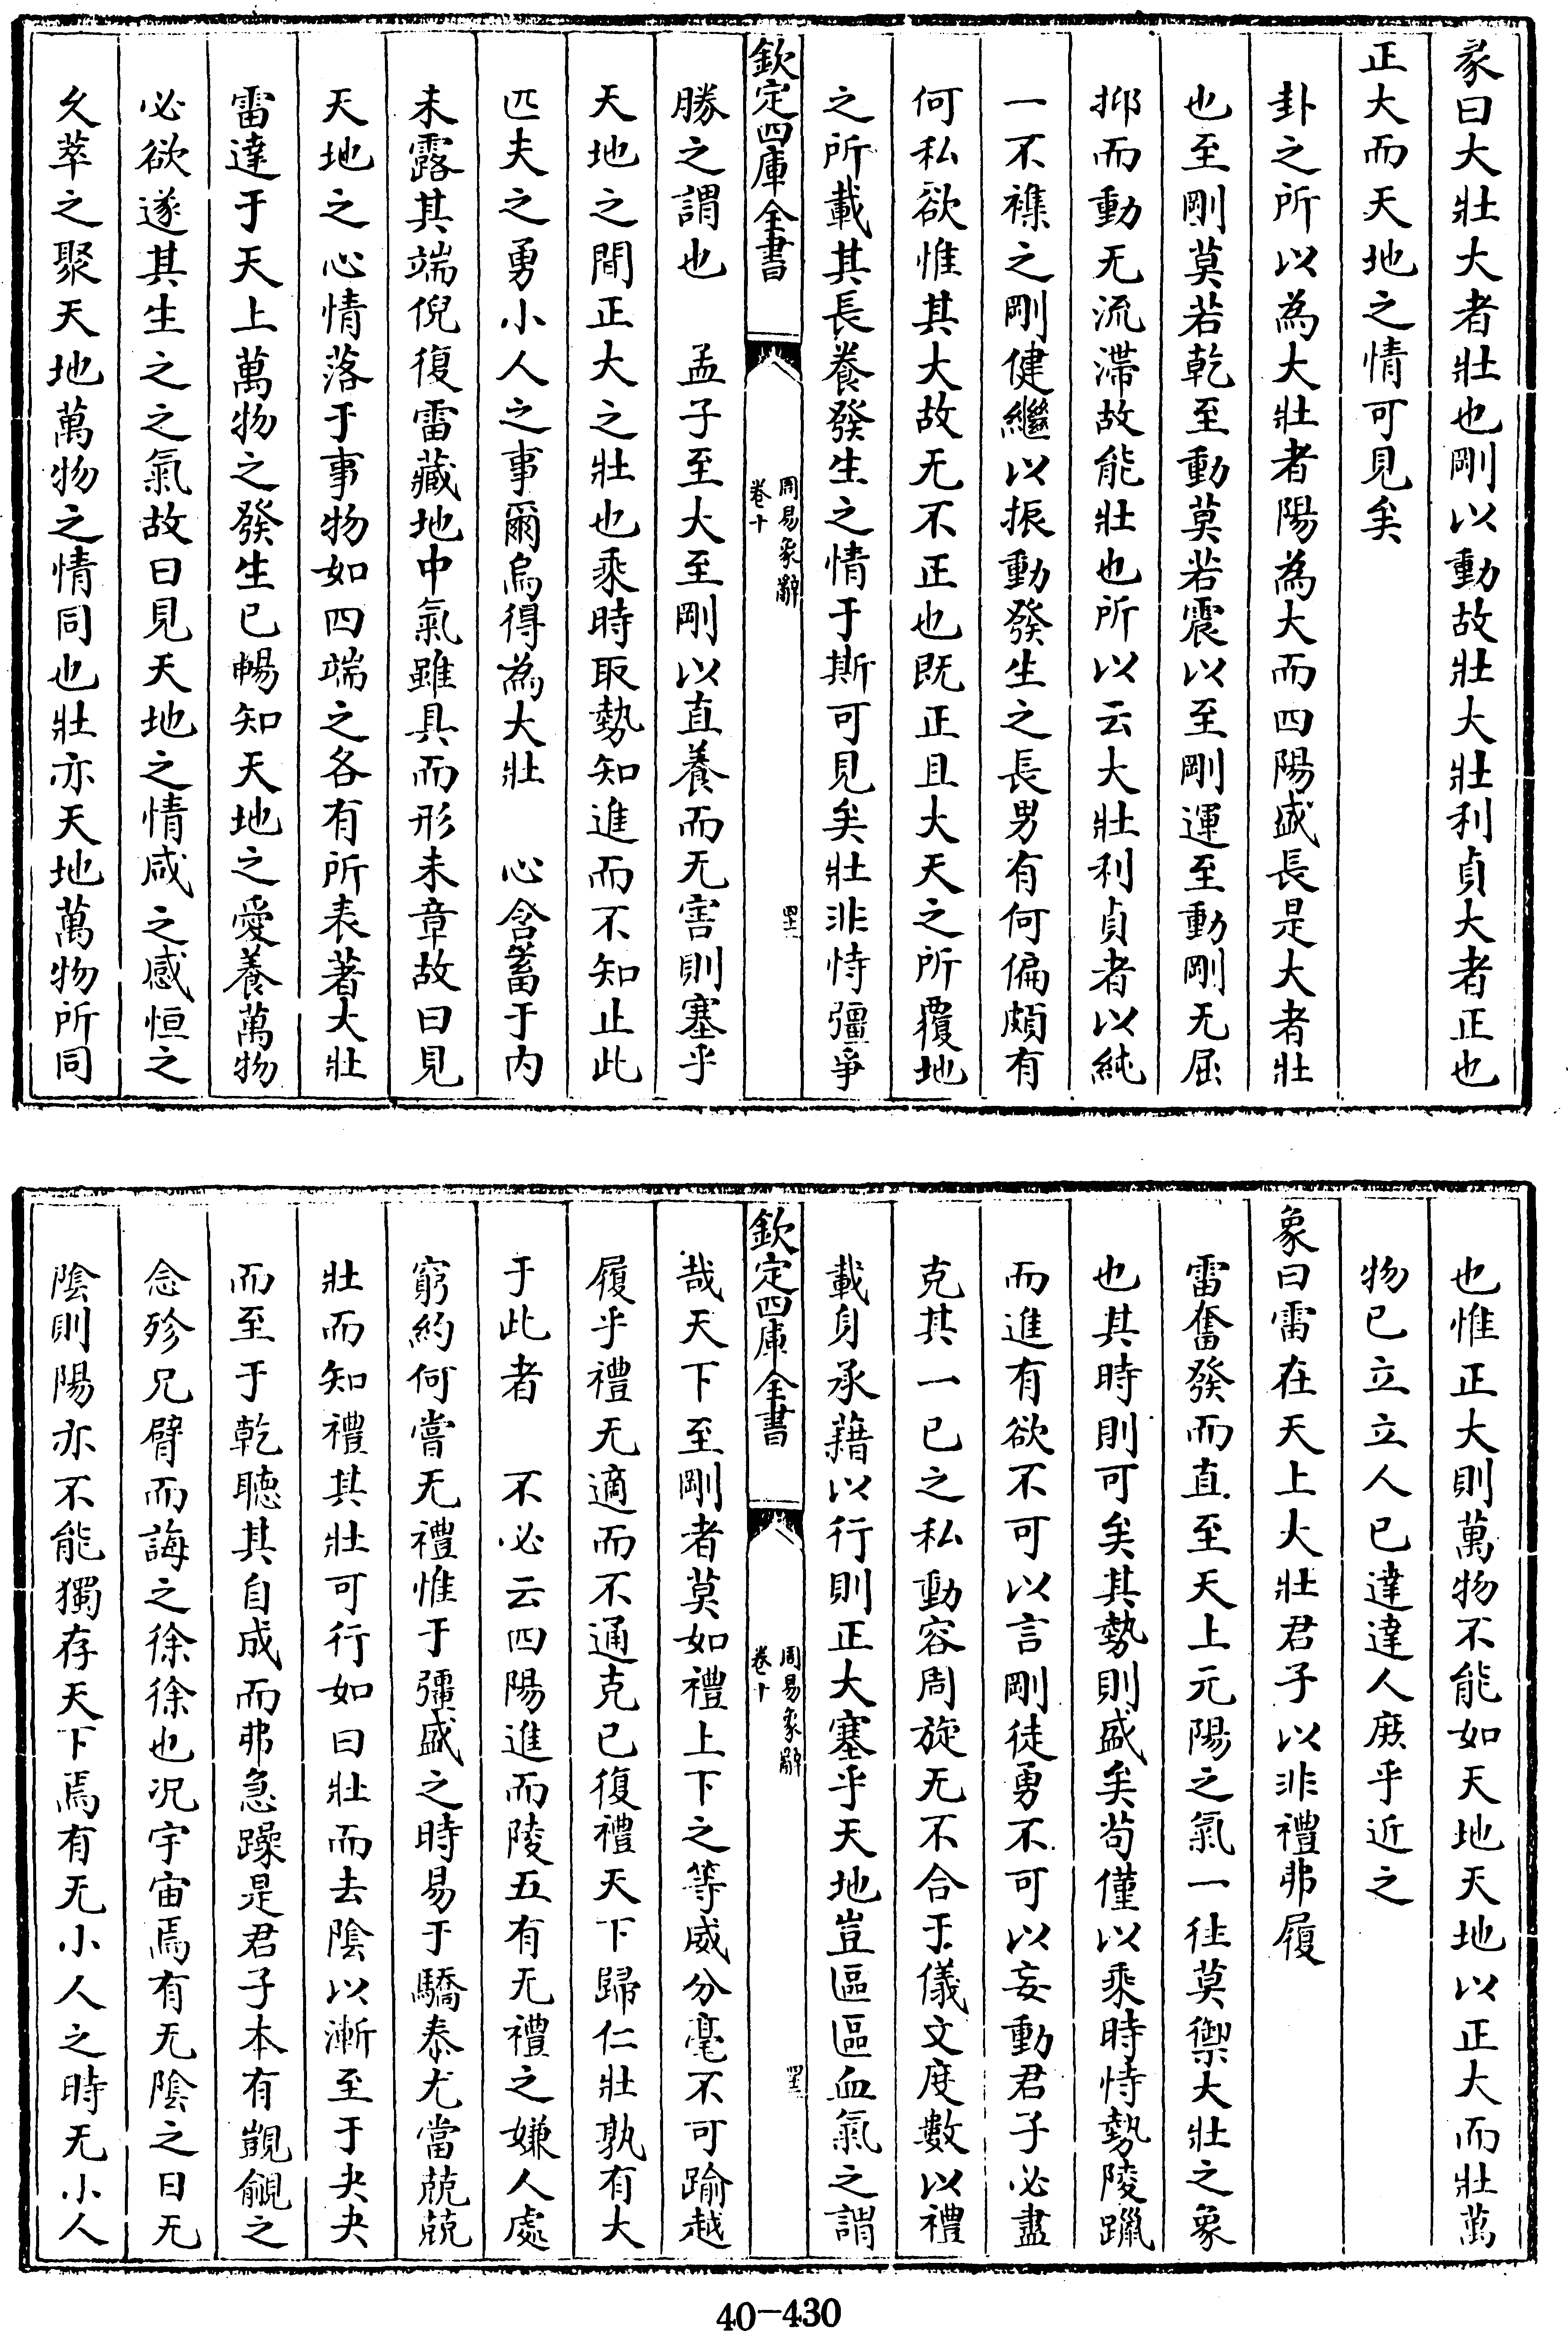 彖曰大壯大者壯也剛以動故壯大壯利貞大者正也
正大而天地之情可見矣
卦之所以為大壯者陽為大而四陽盛長是大者壯
也至剛莫若乾至動莫若震以至剛運至動剛无屈
抑而動无流滯故能壯也所以云大壯利貞者以純
一不襍之剛健繼以振動發生之長男有何偏頗有
何私欲惟其大故无不正也既正且大天之所覆地
之所載其長養發生之情于斯可見矣壯非恃彊爭
欽定四庫全書
周易象辭
卷十
勝之謂也 孟子至大至剛以直養而无害則塞乎
天地之間正大之壯也乘時取勢知進而不知止此
匹夫之勇小人之事爾烏得為大壯 心含蓄于内
未露其端倪復雷藏地中氣雖具而形未章故曰見
天地之心情落于事物如四端之各有所表著大壯
雷達于天上萬物之發生已暢知天地之愛養萬物
必欲遂其生之之氣故曰見天地之情咸之感恒之
久萃之聚天地萬物之情同也壯亦天地萬物所同
也惟正大則萬物不能如天地天地以正大而壯萬
物已立立人已達達人庶乎近之
象曰雷在天上大壯君子以非禮弗履
雷奮發而直至天上元陽之氣一往莫禦大壯之象
也其時則可矣其勢則盛矣茍僅以乘時恃勢陵躐
而進有欲不可以言剛徒勇不可以妄動君子必盡
克其一已之私動容周旋无不合于儀文度數以禮
載身承藉以行則正大塞乎天地豈區區血氣之謂
欽定四庫全書
周易象辭
卷十
哉天下至剛者莫如禮上下之等威分毫不可踰越
履乎禮无適而不通克已復禮天下歸仁壯孰有大
于此者 不必云四陽進而陵五有无禮之嫌人處
窮約何嘗无禮惟于彊盛之時易于驕泰尤當兢兢
壯而知禮其壯可行如曰壯而去陰以漸至于夬夬
而至于乾聽其自成而弗急躁是君子本有覬覦之
念殄兄臂而誨之徐徐也况宇宙焉有无陰之日无
陰則陽亦不能獨存天下焉有无小人之時无小人
40-430